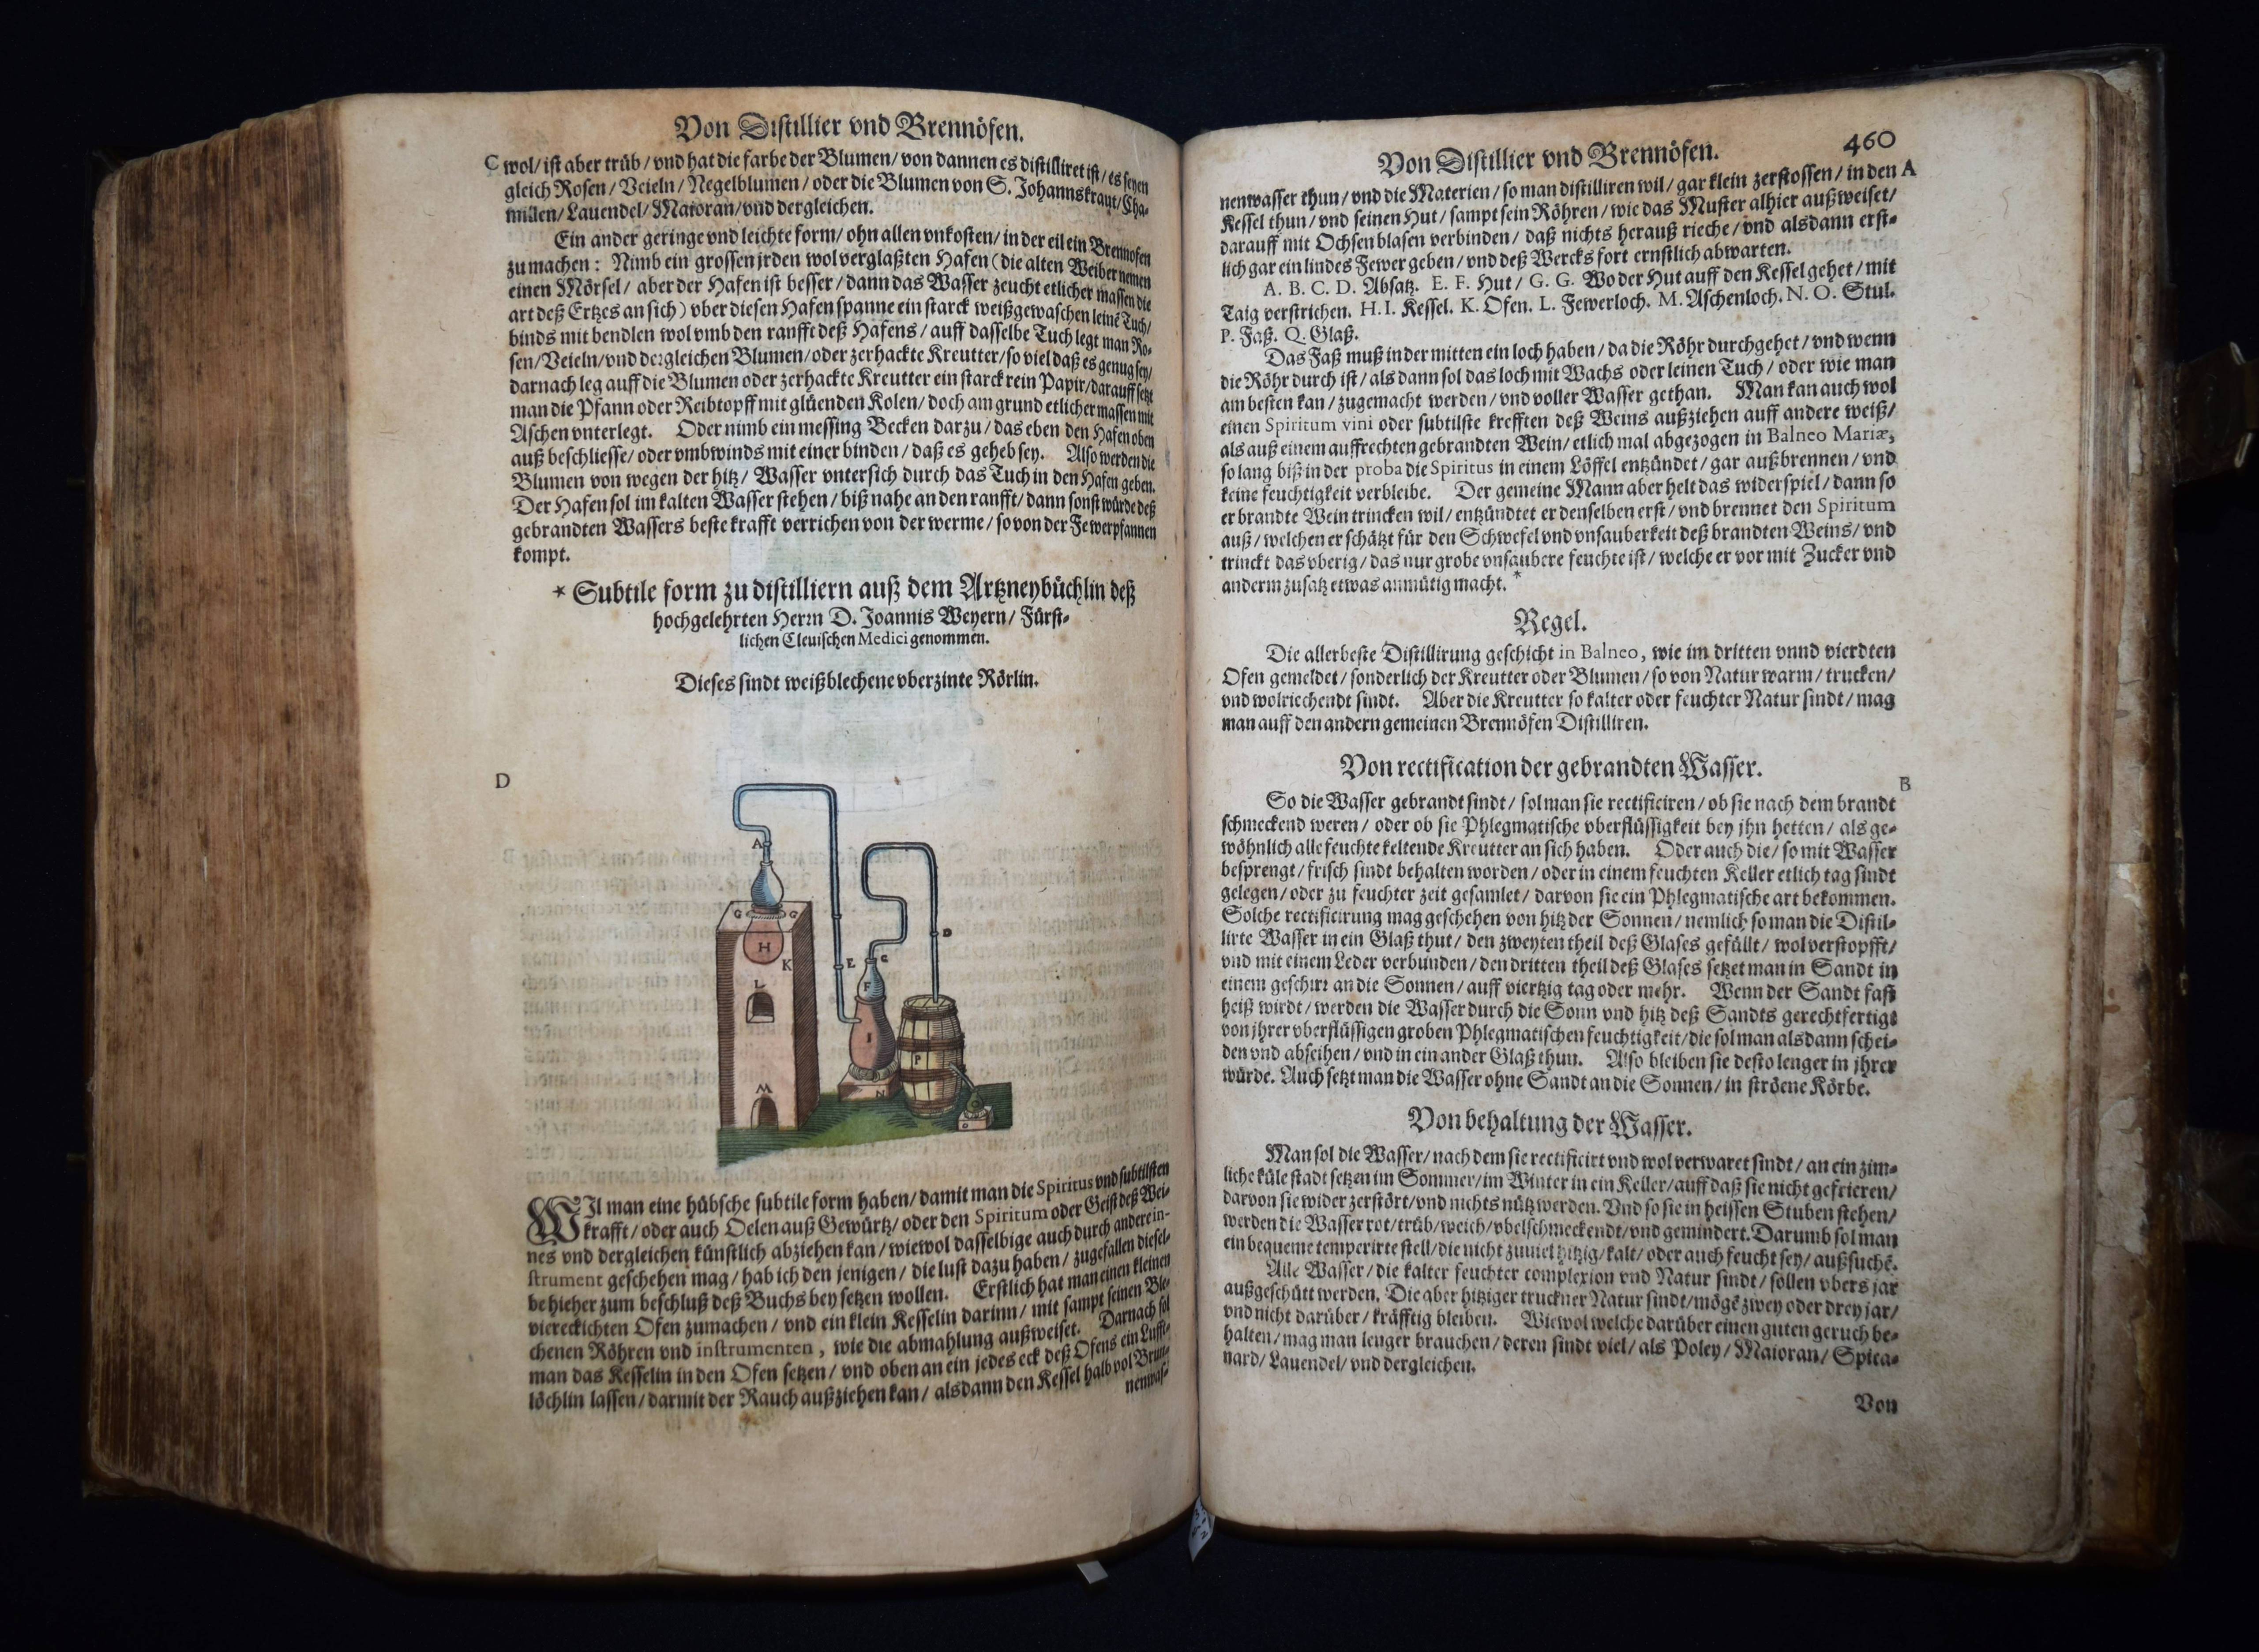 Von Distillier vnd Brennöfen.
C wol/ ist aber trüb/ vnd hat die farbe der Blumen/ von dannen es distilliret ist/ es seyen
gleich Rosen/ Veieln/ Negelblumen/ oder die Blumen von S. Johannskraut/ Cha⸗
millen/ Lauendel/ Maioran/ vnd dergleichen.
Ein ander geringe vnd leichte form/ ohn allen vnkosten/ in der eil ein Brennofen
zu machen: Nimb ein grossen jrden wol verglaßten Hafen (die alten Weiber nemen
einen Mörsel/ aber der Hafen ist besser/ dann das Wasser zeucht etlicher massen die
art deß Ertzes an sich) vber diesen Hafen spanne ein starck weißgewaschen leinē Tuch/
binds mit bendlen wol vmb den ranfft deß Hafens/ auff dasselbe Tuch legt man Ro⸗
sen/ Veieln/ vnd dergleichen Blumen/ oder zerhackte Kreutter/ so viel daß es genug sey/
darnach leg auff die Blumen oder zerhackte Kreutter ein starck rein Papir/ darauff setzt
man die Pfann oder Reibtopff mit glüenden Kolen/ doch am grund etlicher massen mit
Aschen vnterlegt. Oder nimb ein messing Becken darzu/ das eben den Hafen oben
auß beschliesse/ oder vmbwinds mit einer binden/ daß es geheb sey. Also werden die
Blumen von wegen der hitz/ Wasser vntersich durch das Tuch in den Hafen geben.
Der Hafen sol im kalten Wasser stehen/ biß nahe an den ranfft/ dann sonst würde deß
gebrandten Wassers beste krafft verrichen von der werme/ so von der Fewerpfannen
kompt.
* Subtile form zu distilliern auß dem Artzneybüchlin deß
hochgelehrten Herrn D. Joannis Weyern/ Fürst⸗
lichen Cleuischen Medici genommen.
Dieses sindt weißblechene vberzinte Rörlin.
D
A
G G
H
K
L
M
E
C
D
F
I
P
N
O
WIl man eine hübsche subtile form haben/ damit man die Spiritus vnd subtilsten
krafft/ oder auch Oelen auß Gewürtz/ oder den Spiritum oder Geist deß Wei⸗
nes vnd dergleichen künstlich abziehen kan/ wiewol dasselbige auch durch andere in⸗
strument geschehen mag/ hab ich den jenigen/ die lust dazu haben/ zugefallen diesel⸗
be hieher zum beschluß deß Buchs bey setzen wollen. Erstlich hat man einen kleinen
viereckichten Ofen zumachen/ vnd ein klein Kesselin darinn/ mit sampt seinen Ble⸗
chenen Röhren vnd instrumenten, wie die abmahlung außweiset. Darnach sol
man das Kesselin in den Ofen setzen/ vnd oben an ein jedes eck deß Ofens ein Lufft⸗
löchlin lassen/ darmit der Rauch außziehen kan/ alsdann den Kessel halb vol Brun⸗
nenwas⸗
Von Distillier vnd Brennöfen. 460
nenwasser thun/ vnd die Materien/ so man distilliren wil/ gar klein zerstossen/ in den A
Kessel thun/ vnd seinen Hut/ sampt sein Röhren/ wie das Muster alhier außweiset/
darauff mit Ochsenblasen verbinden/ daß nichts herauß rieche/ vnd alsdann erst⸗
lich gar ein lindes Fewer geben/ vnd deß Wercks fort ernstlich abwarten.
A. B. C. D. Absatz. E. F. Hut/ G. G. Wo der Hut auff den Kessel gehet/ mit
Taig verstrichen. H. I. Kessel. K. Ofen. L. Fewerloch. M. Aschenloch. N. O. Stul.
P. Faß. Q. Glaß.
Das Faß muß in der mitten ein loch haben/ da die Röhr durchgehet/ vnd wenn
die Röhr durch ist/ als dann sol das loch mit Wachs oder leinen Tuch/ oder wie man
am besten kan/ zugemacht werden/ vnd voller Wasser gethan. Man kan auch wol
einen Spiritum vini oder subtilste krefften deß Weins außziehen auff andere weiß/
als auß einem auffrechten gebrandten Wein/ etlich mal abgezogen in Balneo Mariæ,
so lang biß in der proba die Spiritus in einem Löffel entzündet/ gar außbrennen/ vnd
keine feuchtigkeit verbleibe. Der gemeine Mann aber helt das widerspiel/ dann so
er brandte Wein trincken wil/ entzündtet er denselben erst/ vnd brennet den Spiritum
auß/ welchen er schätzt für den Schwefel vnd vnsauberkeit deß brandten Weins/ vnd
trinckt das vberig/ das nur grobe vnsaubere feuchte ist/ welche er vor mit Zucker vnd
anderm zusatz etwas anmütig macht. *
Regel.
Die allerbeste Distillirung geschicht in Balneo, wie im dritten vnnd vierdten
Ofen gemeldet/ sonderlich der Kreutter oder Blumen/ so von Natur warm/ trucken/
vnd wolriechendt sindt. Aber die Kreutter so kalter oder feuchter Natur sindt/ mag
man auff den andern gemeinen Brennöfen Distilliren.
Von rectification der gebrandten Wasser.
B
So die Wasser gebrandt sindt/ sol man sie rectificiren/ ob sie nach dem brandt
schmeckend weren/ oder ob sie Phlegmatische vberflüssigkeit bey jhn hetten/ als ge⸗
wöhnlich alle feuchte keltende Kreutter an sich haben. Oder auch die/ so mit Wasser
besprengt/ frisch sindt behalten worden/ oder in einem feuchten Keller etlich tag sindt
gelegen/ oder zu feuchter zeit gesamlet/ darvon sie ein Phlegmatische art bekommen.
Solche rectificirung mag geschehen von hitz der Sonnen/ nemlich so man die Distil⸗
lirte Wasser in ein Glaß thut/ den zweyten theil deß Glases gefüllt/ wol verstopfft/
vnd mit einem Leder verbunden/ den dritten theil deß Glases setzet man in Sandt in
einem geschirr an die Sonnen/ auff viertzig tag oder mehr. Wenn der Sandt fast
heiß wirdt/ werden die Wasser durch die Sonn vnd hitz deß Sandts gerechtfertigt
von jhrer vberflüssigen groben Phlegmatischen feuchtigkeit/ die sol man alsdann schei⸗
den vnd abseihen/ vnd in ein ander Glaß thun. Also bleiben sie desto lenger in jhrer
würde. Auch setzt man die Wasser ohne Sandt an die Sonnen/ in ströene Körbe.
Von behaltung der Wasser.
Man sol die Wasser/ nach dem sie rectificirt vnd wol verwaret sindt/ an ein zim⸗
liche küle stadt setzen im Sommer/ im Winter in ein Keller/ auff daß sie nicht gefrieren/
darvon sie wider zerstört/ vnd nichts nütz werden. Vnd so sie in heissen Stuben stehen/
werden die Wasser rot/ trüb/ weich/ vbelschmeckendt/ vnd gemindert. Darumb sol man
ein bequeme temperirte stell/ die nicht zuuiel hitzig/ kalt/ oder auch feucht sey/ außsuchē.
Alle Wasser/ die kalter feuchter complexion vnd Natur sindt/ sollen vbers jar
außgeschütt werden. Die aber hitziger truckner Natur sindt/ mögē zwey oder drey jar/
vnd nicht darüber/ kräfftig bleiben. Wiewol welche darüber einen guten geruch be⸗
halten/ mag man lenger brauchen/ deren sindt viel/ als Poley/ Maioran/ Spica⸗
nard/ Lauendel/ vnd dergleichen.
Von